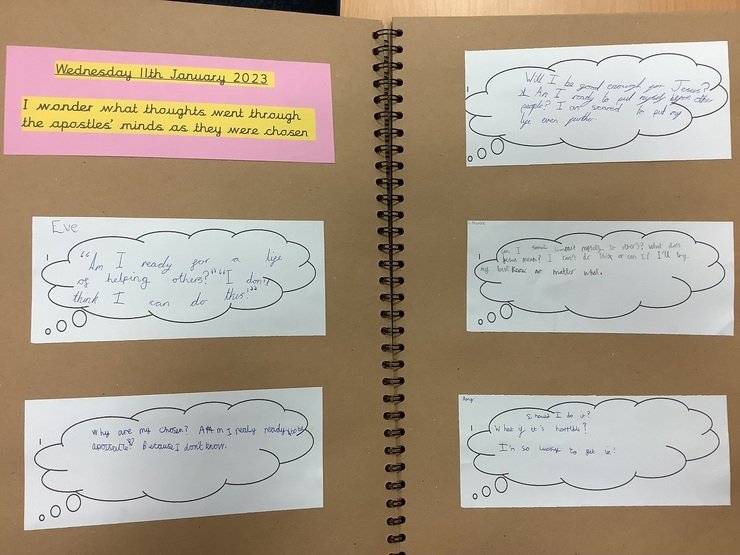 Wednesday 11th January 2023
I wonder what thoughts went through
the apostles' minds as they were chosen
Eve
"Am I ready for a life
of helping others?" "I don't
think I can do this."
Why are my chosen? Am I realy ready to be
apostle? Because I dont know.
Will I be good enough for Jesus?
Am I ready to put myself before other
people? I am scared to put my
life even further
I commit myself to others? What does
Jesus mean? I can't do this or can I? I'll try
my best know no matter what.
Amy
Should I do it?
What if it's horrible?
I'm so lucky to get in!